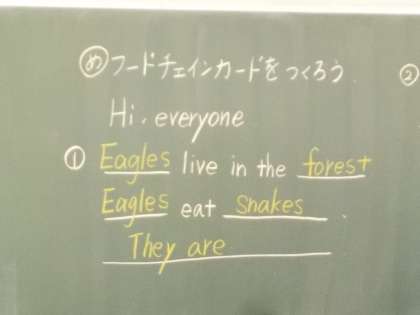 め フードチェインカードをつくろう ②
Hi, everyone
① Eagles live in the forest
Eagles eat Snakes .
They are